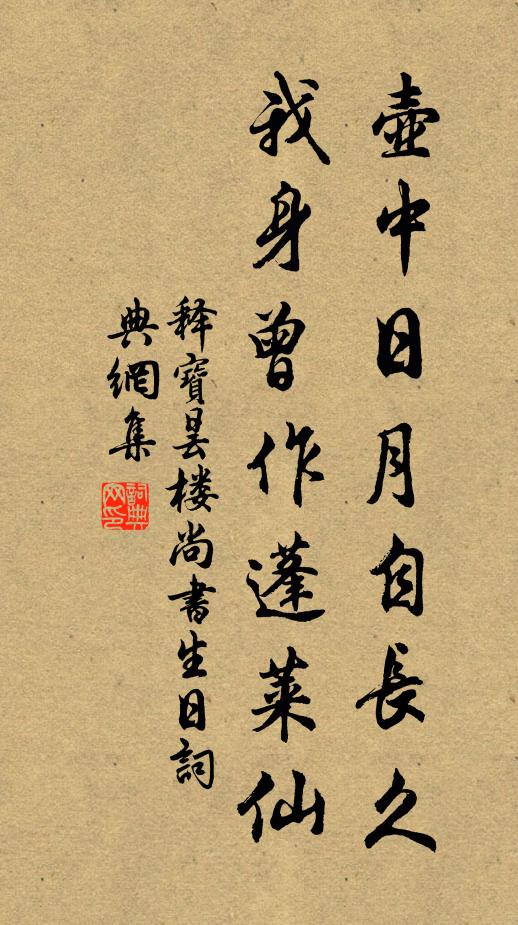 壺中日月自長久
我身曾作蓬萊仙
释寶昙楼尚書生日詞
典網集
詞典
网印